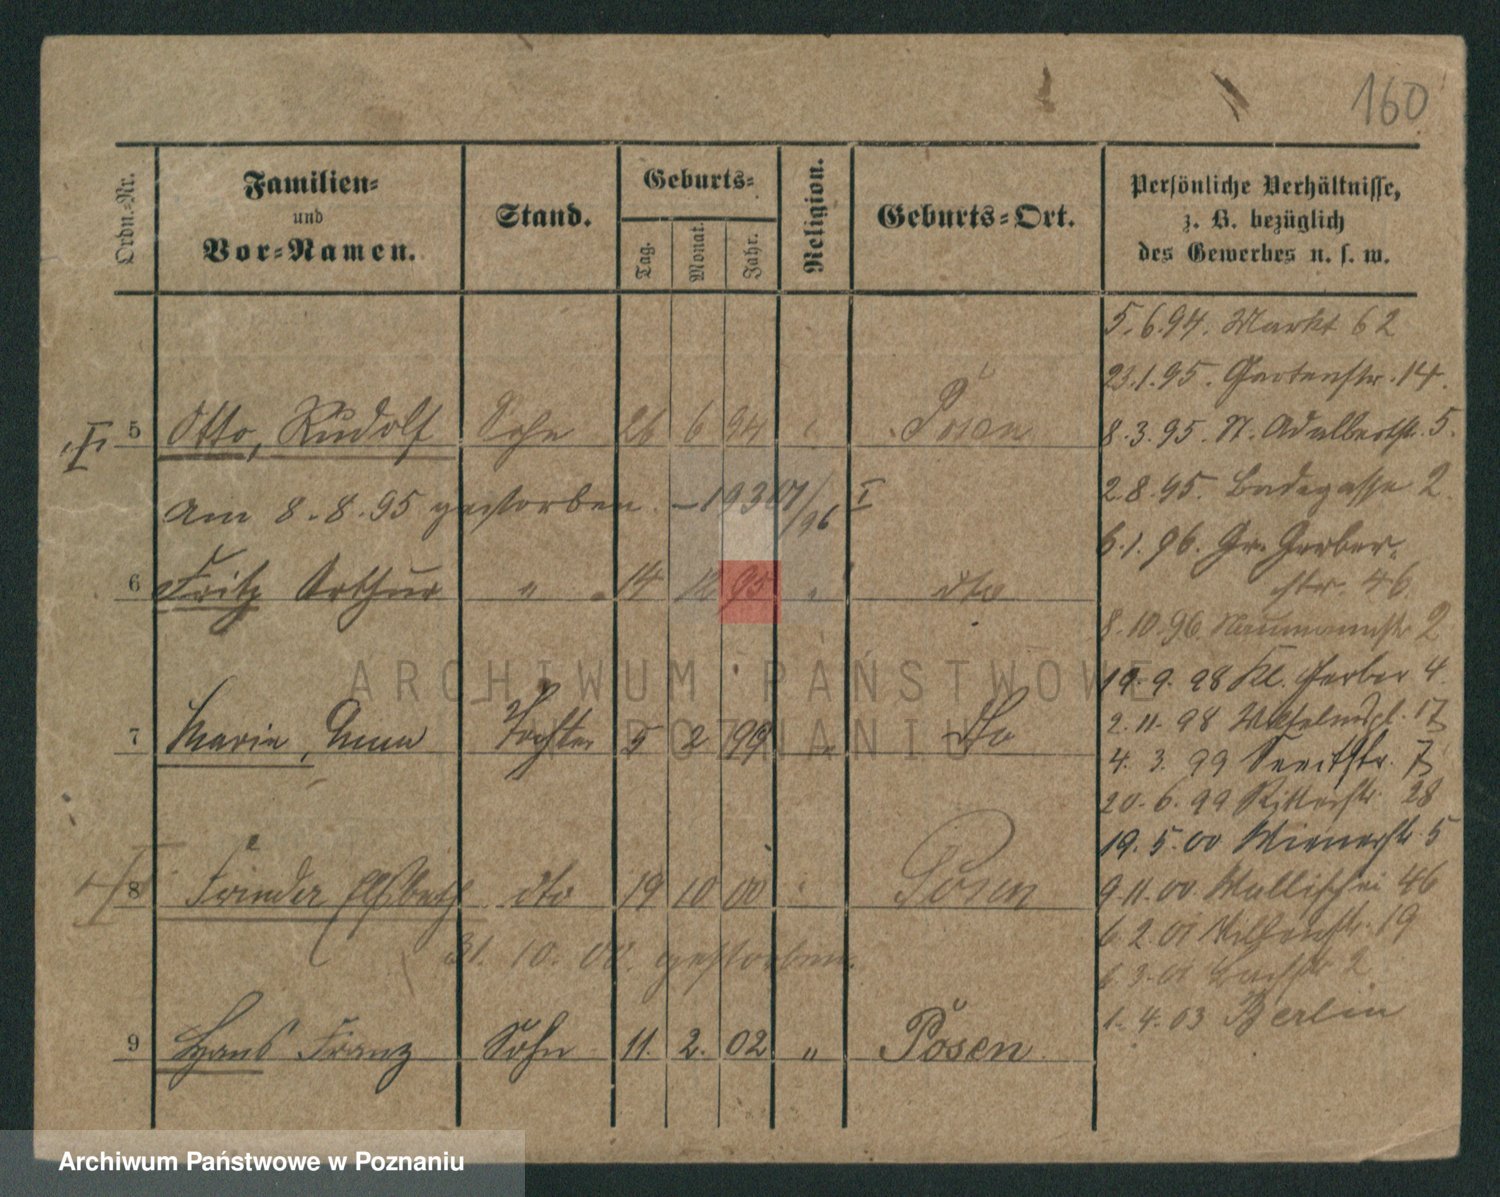 160
Ordn.-Nr.
Familien-
und
Vor-Namen.
Stand.
Geburts-
Tag.
Monat.
Jahr.
Religion.
Geburts-Ort.
Persönliche Verhältnisse,
z. B. bezüglich
des Gewerbes u. s. w.
5.6.94. Markt 62
23.1.95. Gartenstr. 14.
5 Otto, Rudolf Sohn 26 6 94 Posen
8.3.95. St. Adalbertstr. 5.
Am 8.8.95 gestorben. – 19307/96 I
2.8.95. Badegasse 2.
6.1.96. Gr. Gerber-
str. 46.
6 Fritz Arthur " 14 12 95 " dto
8.10.96 Naumannstr 2
19.9.98 Kl. Gerber 4.
2.11.98 17
7 Marie, Anna Tochter 5 2 99 " dto
4.3.99 7
20.6.99 Ritterstr. 28
19.5.00 Wienerstr 5
8 Elsbeth dto 19 10 00 " Posen
9.11.00 Wallischei 46
6.2.01 19
31.10.00. gestorben.
6.3.01 Bachstr 2
1.4.03 Berlin
9 Hans Franz Sohn 11. 2. 02 " Posen
ARCHIWUM PAŃSTWOWE
W POZNANIU
Archiwum Państwowe w Poznaniu